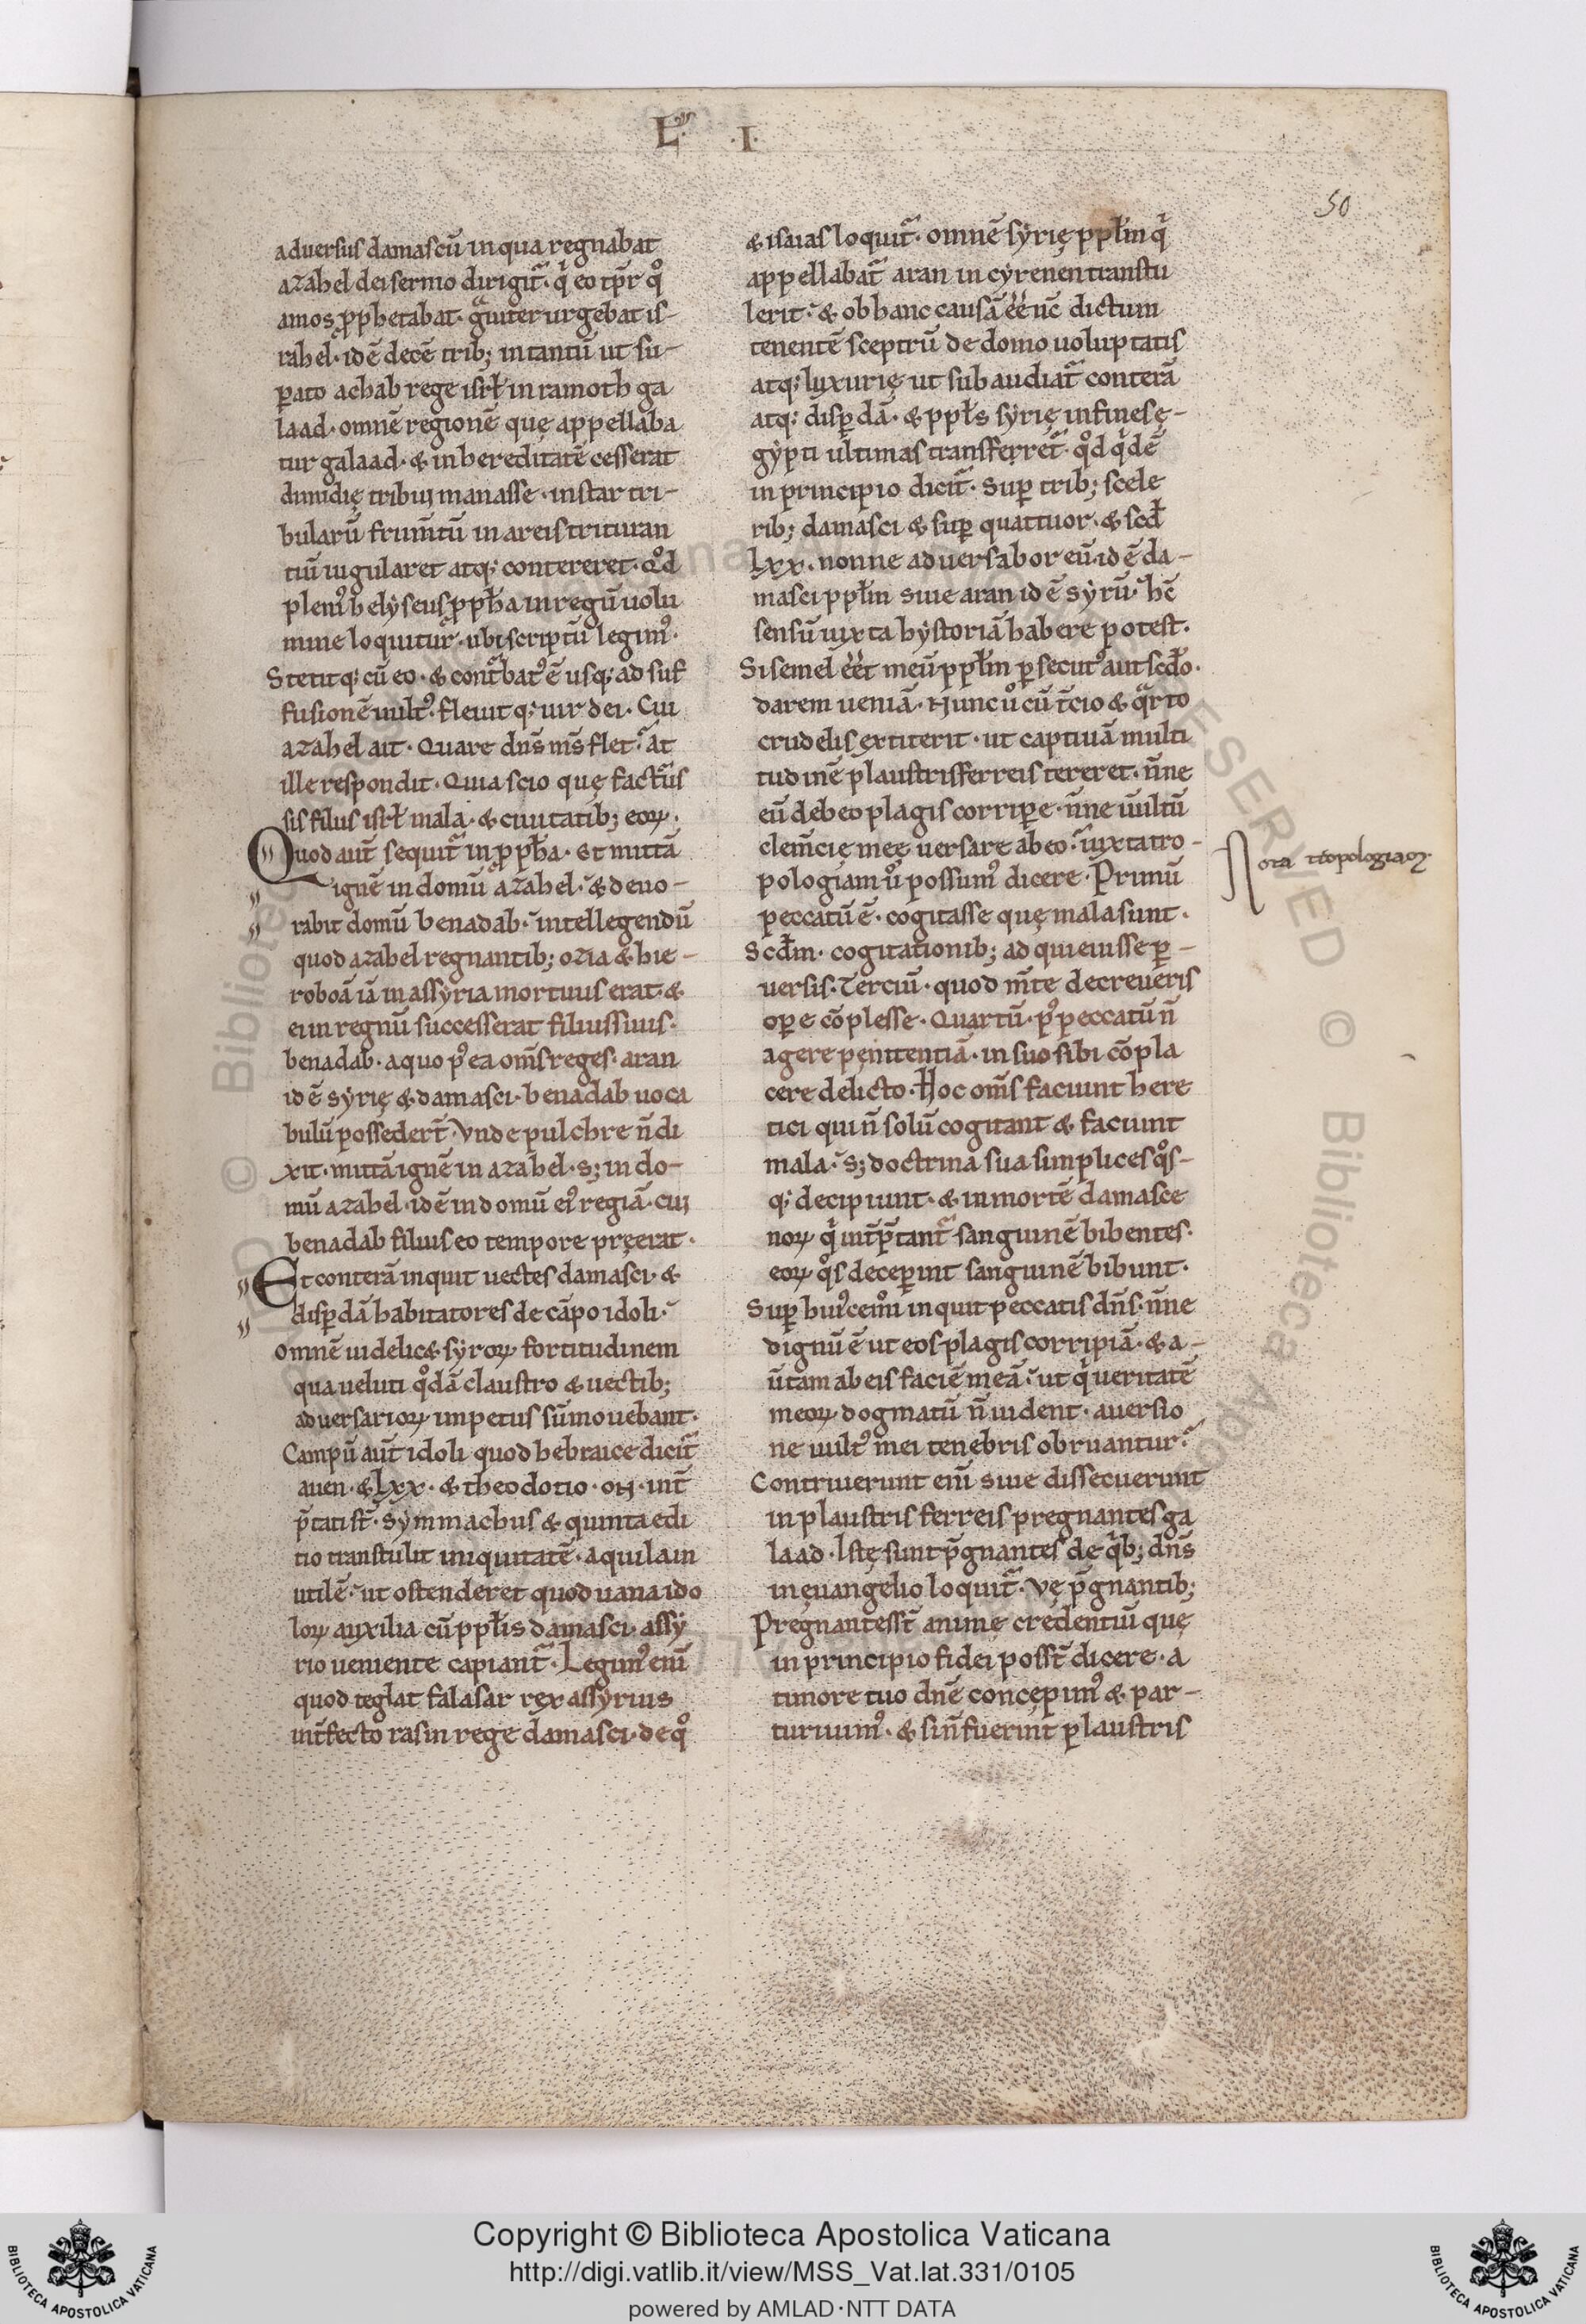 L .I.
50
aduersus damascū in qua regnabat
azahel dei sermo dirigit̃. q̇ eo tp̃r q̊
amos ꝓphetabat. g̃uiter urgebat is-
rahel. idē decē trib; in tantū ut su-
ꝑato achab rege isrł in ramoth ga
laad. omnē regionē quę appellaba
tur galaad. & in hereditatē cesserat
dimidię tribui manasse. instar tri-
bularū frum̃tū in areis trituran
tiū iugularet atq; contereret. Qd̊
plenꝰ helyseus ꝓpħa in regū uolu
mine loquitur. ubi scriptū legimꝰ.
Stetitq; cū eo. & cont̃batꝰ ē usq; ad suf
fusionē uultꝰ. fleuitq; uir dei. Cui
azahel ait. Quare dn̄s m̄s flet. At
ille respondit. Quia scio quę fact̃us
sis filiis isrł mala. & ciuitatib; eoꝝ.
Quod aut̃ sequit̃ in ꝓpħa. Et mittā
ignē in domū azahel. & deuo-
rabit domū benadab. intellegendū
quod azahel regnantib; ozia & hie-
roboā iā in assyria mortuus erat. &
ei in regnū successerat filius suus.
benadab. a quo pꝰ ea om̄s reges. aran
id ē syrię & damasci. benadab uoca
bulū possedert̃. Vnde pulchre n̄ di
xit. mittā ignē in azahel. s; in do-
mū azahel. idē in domū eiꝰ regiā. cui
benadab filius eo tempore pręerat.
Et conterā inquit uectes damasci. &
disꝑdā habitatores de cāpo idoli.
Omnē uidelic& syroꝝ fortitudinem
qua ueluti q̊dā claustro & uectib;
aduersarioꝝ impetus sūmouebant.
Campū aut̃ idoli quod hebraice dicit̃
auen. & lxx. & theodotio. on. int̃
p̄tati st̃. Symmachus & quinta edi
tio transtulit iniquitatē. aquila in
utilē. ut ostenderet quod uana ido
loꝝ auxilia cū ppłis damasci. assy
rio ueniente capiant̃. Legimꝰ eni̅
quod teglat falasar rex assyrius
int̃fecto rasin rege damasci. de q̊
& isaias loquit̃. omnē syrię ppłm q̇
appellabat̃ aran in cyrenen transtu
lerit. & ob hanc causā ee̅ nc̄ dictum
tenentē sceptrū de domo uoluptatis
atq; luxurię ut subaudiat̃ conterā
atq; disꝑdā. & ppłs syrię in fines ę-
gypti ultimas transferret̃. qd̊ q̇dē
in principio dicit̃. Suꝑ trib; scele
rib; damasci & suꝑ quattuor. & scd̄
lxx. nonne aduersabor eū. id ē da-
masci ppłm siue aran id ē syrū. hc̄
sensū iuxta hystoriā habere potest.
Si semel ee̅t meū ppłm ꝑsecutꝰ aut scd̄o.
darem ueniā. Nunc ů cū t̃cio & q̃rto
crudelis extiterit. ut captiuā multi
tudinē plaustris ferreis tereret. n̄ne
eū debeo plagis corriꝑe. n̄ne uultū
clem̃cię meę uersare ab eo. iuxta tro-
pologiam ů possumꝰ dicere. Primū
peccatū ē. cogitasse quę mala sunt.
Scd̄m. cogitationib; adquieuisse ꝑ-
uersis. Terciū. quod m̃te decreueris
oꝑe cōplesse. Quartū. pꝰ peccatū n̄
agere pęnitentiā. in suo sibi cōpla
cere delicto. Hoc om̄s faciunt here
tici qui n̄ solū cogitant & faciunt
mala. s; doctrina sua simplices q̊s-
q; decipiunt. & in mortē damasce
noꝝ q̇ int̃p̃tant̃ sanguinē bibentes.
eoꝝ q̊s deceꝑint sanguinē bibunt.
Suꝑ huiꝰcemo̊i inquit peccatis dn̄s. n̄ne
dignū ē ut eos plagis corripiā. & a-
ūtam ab eis faciē meā. ut q̇ ueritatē
meoꝝ dogmatū n̄ uident. auersio
ne uultꝰ mei tenebris obruantur.
Contriuerunt eni̅ siue dissecuerunt
in plaustris ferreis pregnantes ga
laad. Istę sunt p̄gnantes de q̇b; dn̄s
in euangelio loquit̃. Vę p̄gnantib;
Pregnantes st̃ animę credentiū quę
in principio fidei posst̃ dicere. a
timore tuo dn̄e concepimꝰ & par-
turiuimꝰ. & si n̄ fuerint plaustris
Nota tropologiaꝫ.
Copyright © Biblioteca Apostolica Vaticana
http://digi.vatlib.it/view/MSS_Vat.lat.331/0105
powered by AMLAD·NTT DATA
BIBLIOTECA APOSTOLICA VATICANA
BIBLIOTECA APOSTOLICA VATICANA